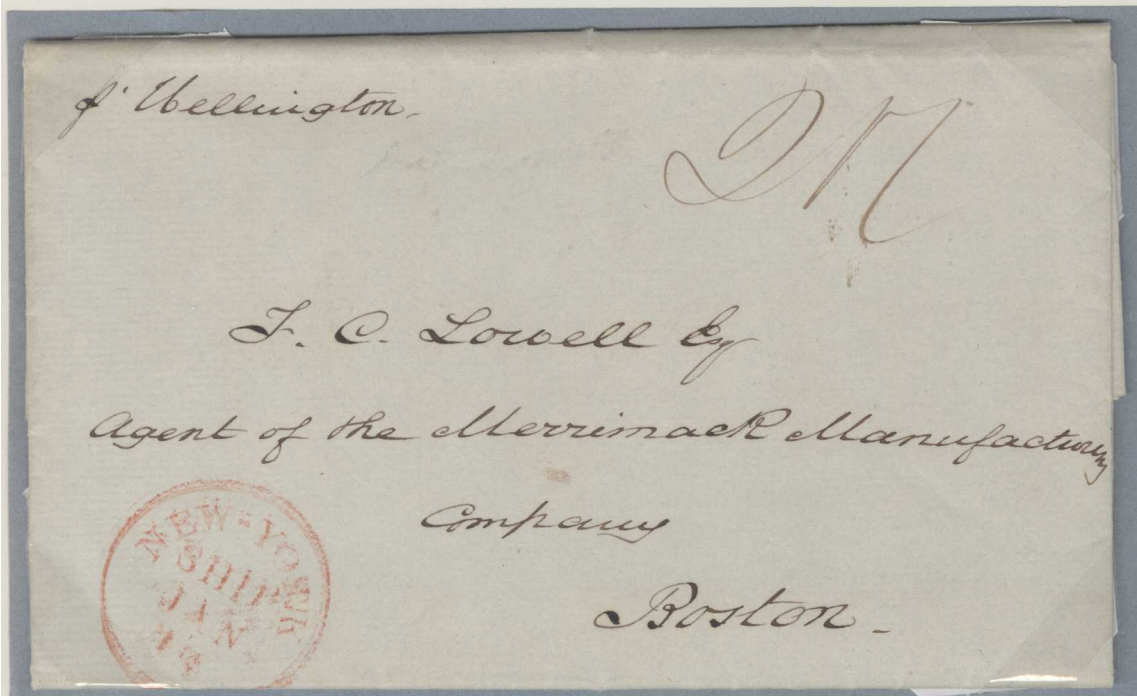 pr Wellington.
F. C. Lowell Esq
Agent of the Merrimack Manufacturing
Company
Boston.
NEW-YORK
SHIP
JAN